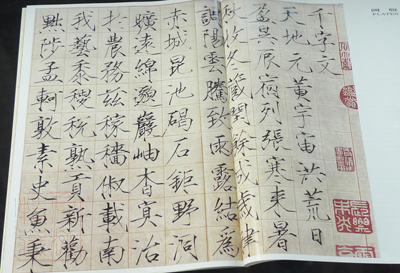 圖版
PLATES
千字文
天地元黃宇宙洪荒日
盈昃辰宿列張寒來暑
秋收冬藏閏餘成歲律
調陽雲騰致雨露結爲
赤城昆池碣石鉅野洞
曠遠綿邈巖岫杳冥治
於農務茲稼穡俶載南
我藝黍稷稅熟貢新勸
黜陟孟軻敦素史魚秉